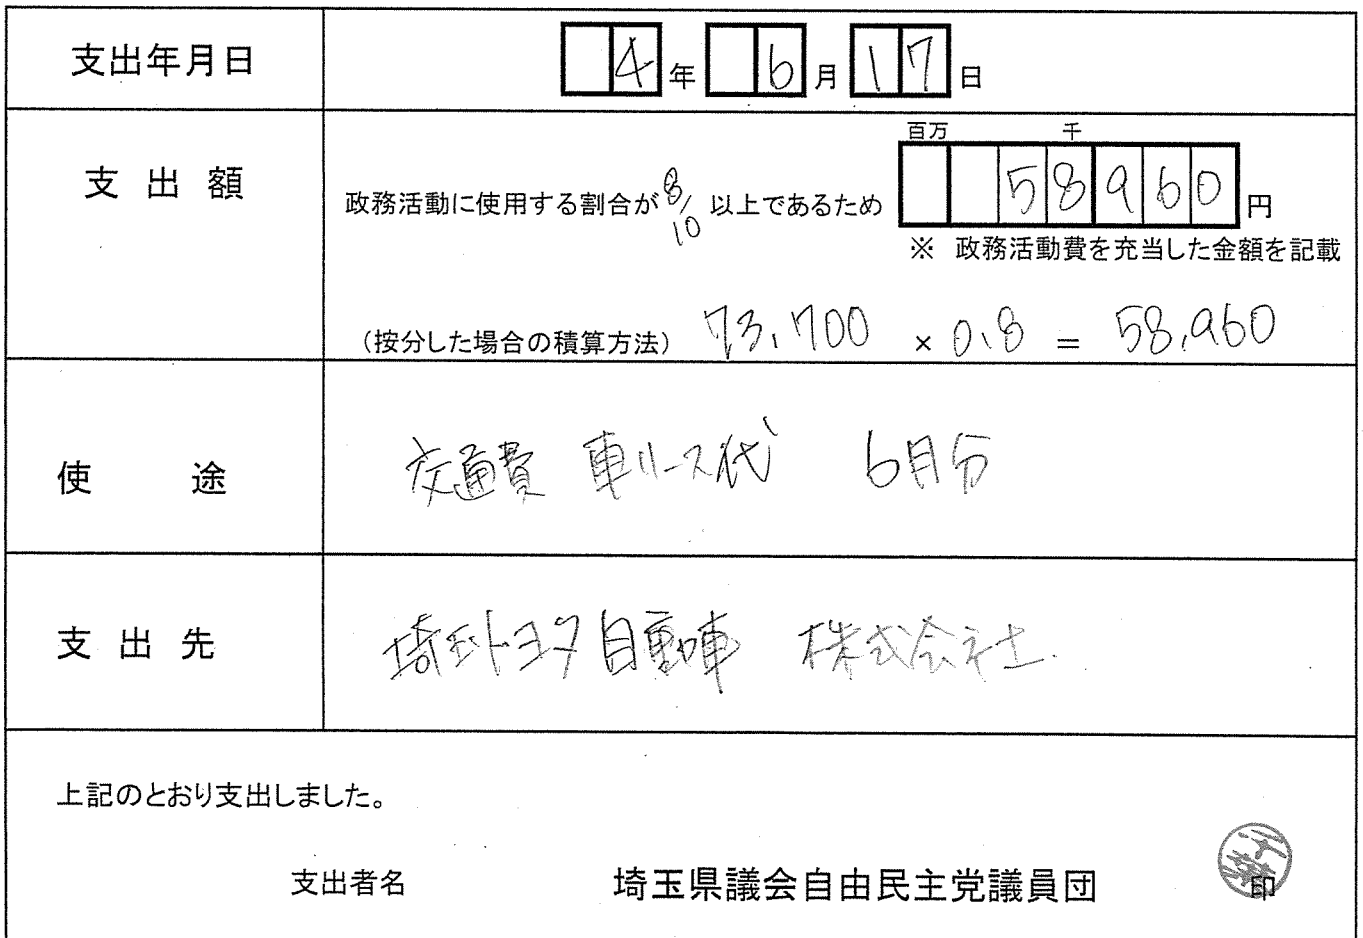 支出年月日 4年 6月 17日
百万 千
支出額 政務活動に使用する割合が8/10以上であるため 58960円
※ 政務活動費を充当した金額を記載
（按分した場合の積算方法） 73,700 × 0.8 = 58,960
使途 交通費 車リース代 6月分
支出先 埼玉トヨタ自動車 株式会社
上記のとおり支出しました。
支出者名 埼玉県議会自由民主党議員団 印